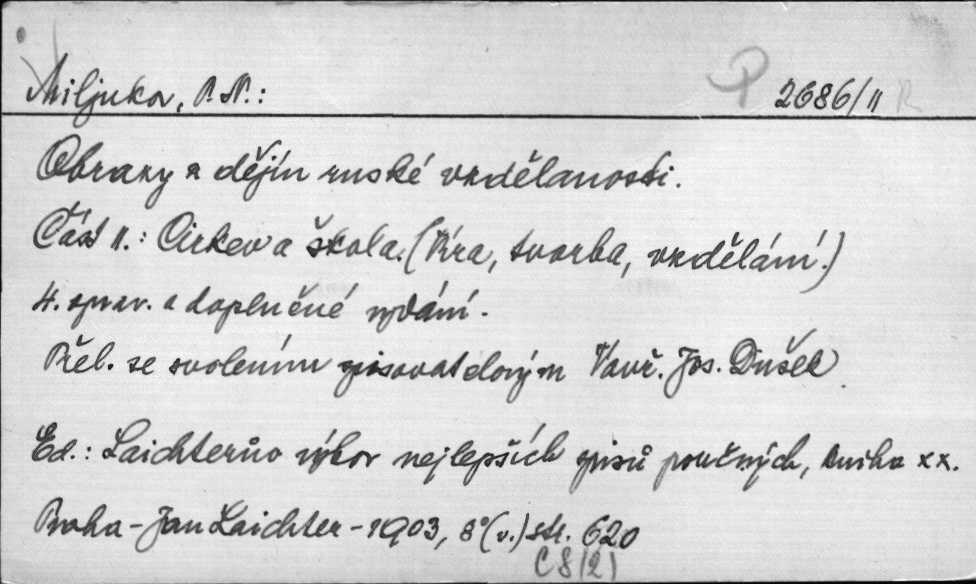 Miljukov, P. N.: P 2686/II R
Obrazy z dějin ruské vzdělanosti.
Část II.: Církev a škola. (Víra, tvorba, vzdělání.)
4. oprav. a doplněné vydání.
Přel. se svolením spisovatelovým Vavř. Jos. Dušek
Ed.: Laichterův výbor nejlepších spisů poučných, kniha XX.
Praha - Jan Laichter - 1903, 8° (v.) str. 620
C 8 (2)